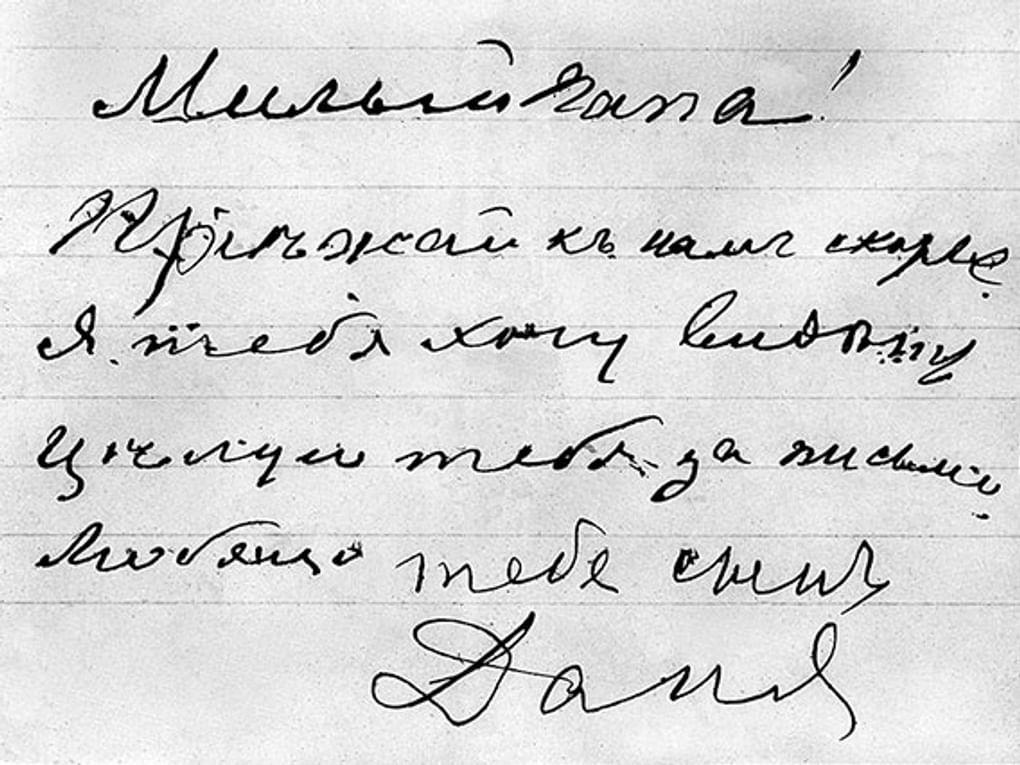 Милый папа!
Приѣзжай къ намъ скорѣе.
Я тебя хочу
Цѣлую тебя за письмо.
тебя сынъ
Даня